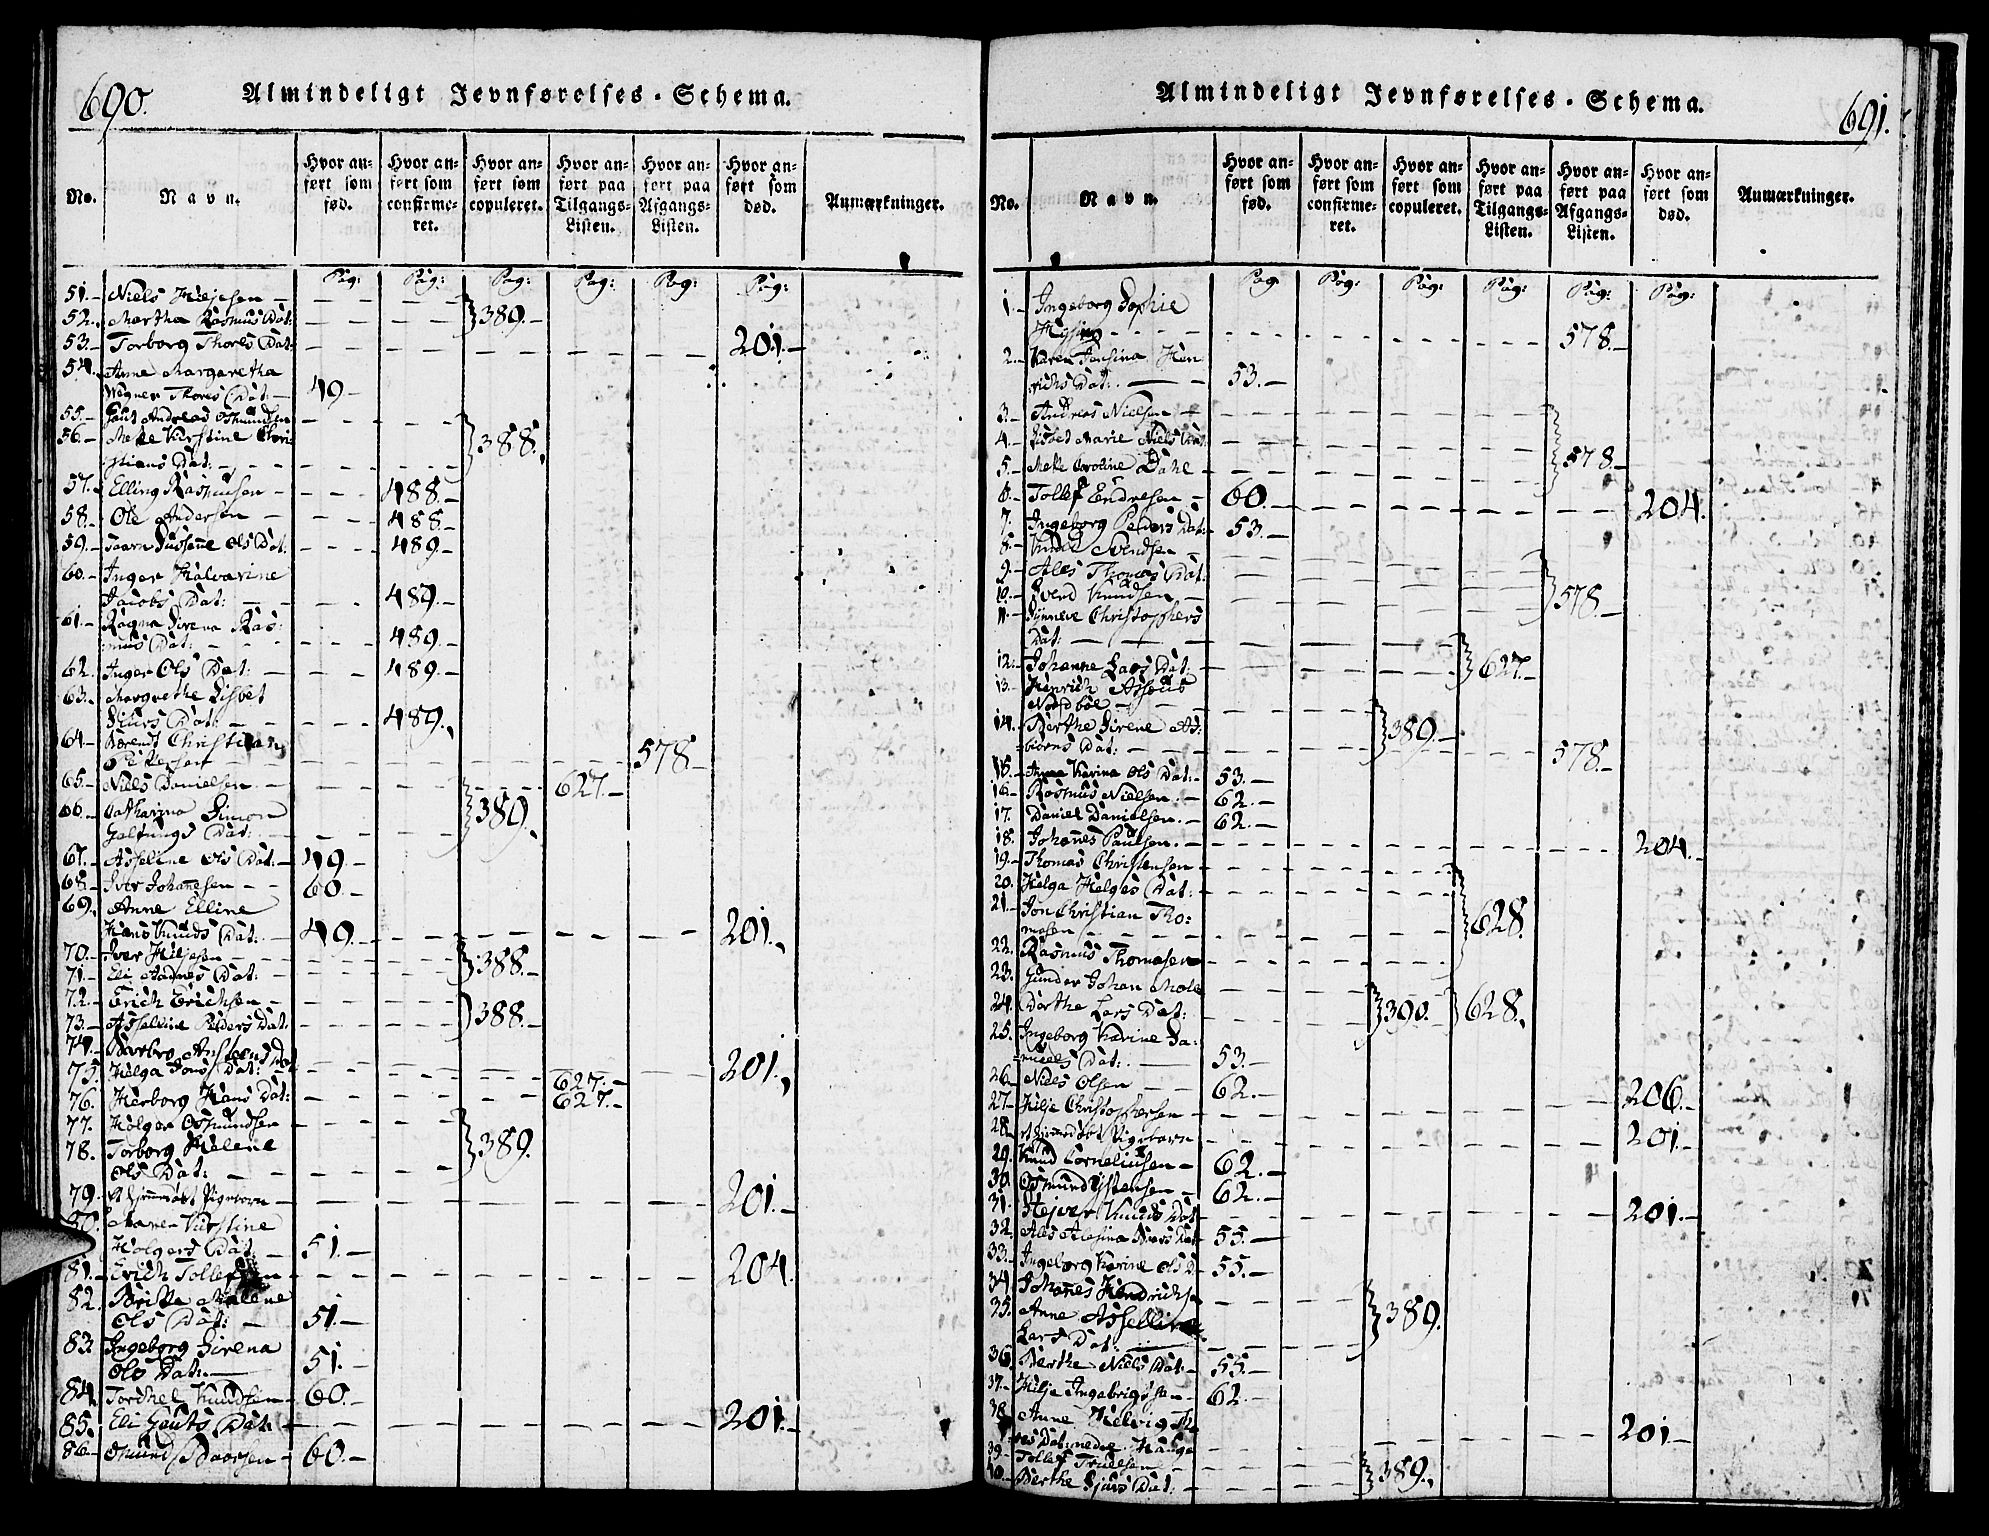 690.
Almindeligt Jevnførelses-Schema.
No.
Navn.
Hvor anført som fød.
Hvor anført som confirmeret.
Hvor anført som copuleret.
Hvor anført paa Tilgangs-Listen.
Hvor anført paa Afgangs-Listen.
Hvor anført som død.
Anmærkninger.
Pag: Pag: Pag: Pag: Pag: Pag:
51. Niels
52. Martha Rasmus Dat: 389.
53. Torborg Thores Dat: 201.
54. Anne Margaretha
Wegner Thores Dat: 49
55. Gaut Andreas Osmundsen
56. Mette Kirstine Chri-
stians Dat: 388.
57. Elling Rasmusen 488.
58. Ole Andersen 488.
59. Ols Dat: 489
60. Inger Halvarine
Jacobs Dat: 489.
61. Ragna Sirena Ras:
mus Dat: 489.
62. Inger Ols Dat: 489.
63. Margrethe Lisbet
Dat: 489.
64. Berendt Christian
578
65. Niels Danielsen 627.
66. Catharina Simon
Galtungs Dat: 389.
67. Asseline Ols Dat: 49.
68. Iver Johannesen 60.
69. Anne Elline
Hans Knuds Dat: 49. 201.
70. Iver
71. Eli Aadnes Dat: 388.
72. Erich Erichsen
73. Asseline Peders Dat: 388.
74. 201.
75. Helga Jons Dat: 627.
76. Herborg Hans Dat: 627.
77. Holger Osmundsen
78. Torborg Helene
Ols Dat: 389.
79. Et Pigebarn 201.
80. Maren Kirstine
Holgers Dat: 51.
81. Erich 204.
82. Britte Malene
Ols Dat: 51.
83 Ingeborg Sirena
Ols Dat: 51.
84. Torchel Knudsen 60.
85. Eli Gauts Dat: 201.
86. Osmund 60.
Almindeligt Jevnførelses-Schema.
691.
No.
Navn.
Hvor anført som fød.
Hvor anført som confirmeret.
Hvor anført som copuleret.
Hvor anført paa Tilgangs-Listen.
Hvor anført paa Afgangs-Listen.
Hvor anført som død.
Anmærkninger.
Pag Pag: Pag: Pag: Pag: Pag:
1. Ingeborg Sophie
578.
2. Karen Hen
richs Dat: 53.
3. Andreas Nielsen
4. Lisbet Marie Niels Dat:
5. Mette Caroline Dahl 578.
6. Tollef Endresen 60. 204.
7. Ingeborg Peders Dat: 53.
8. Knud Svendsen
9. Ales Thomas Dat:
10. Svend Knudsen 578.
11. Synneve Christophers
Dat:
12. Johanne Lars Dat: 627.
13. Henrich
14. Berthe Sirene As-
biørns Dat: 389. 578.
15. Anna Karina Ols Dat: 53.
16. Rasmus Nielsen 62.
17. Daniel Danielsen 62.
18. Johannes Paulsen 204.
19. Thomas Christensen
20. Helga Helges Dat:
21. Jon Christian Tho:
masen 628.
22. Rasmus Thomasen
23. Gunder Johan
24. Dorthe Lars Dat: 390. 628.
25. Ingeborg Karine Sa:
muels Dat: 53.
26. Niels Olsen 62.
27. Christophersen 206.
28. Pigebarn 201.
29. Knud Corneliusen 62.
30. Osmund 62.
31. Knuds Dat 201.
32. Ales Alesina Dat 55.
33. Ingeborg Karine Ols D. 55.
34. Johannes Hendrichsen
35. Anne
Lars Dat: 389.
36. Berthe Niels Dat: 55.
37. 62.
38 Anne Helvig
201
39. Tollef
40. Berthe Dat: 389.